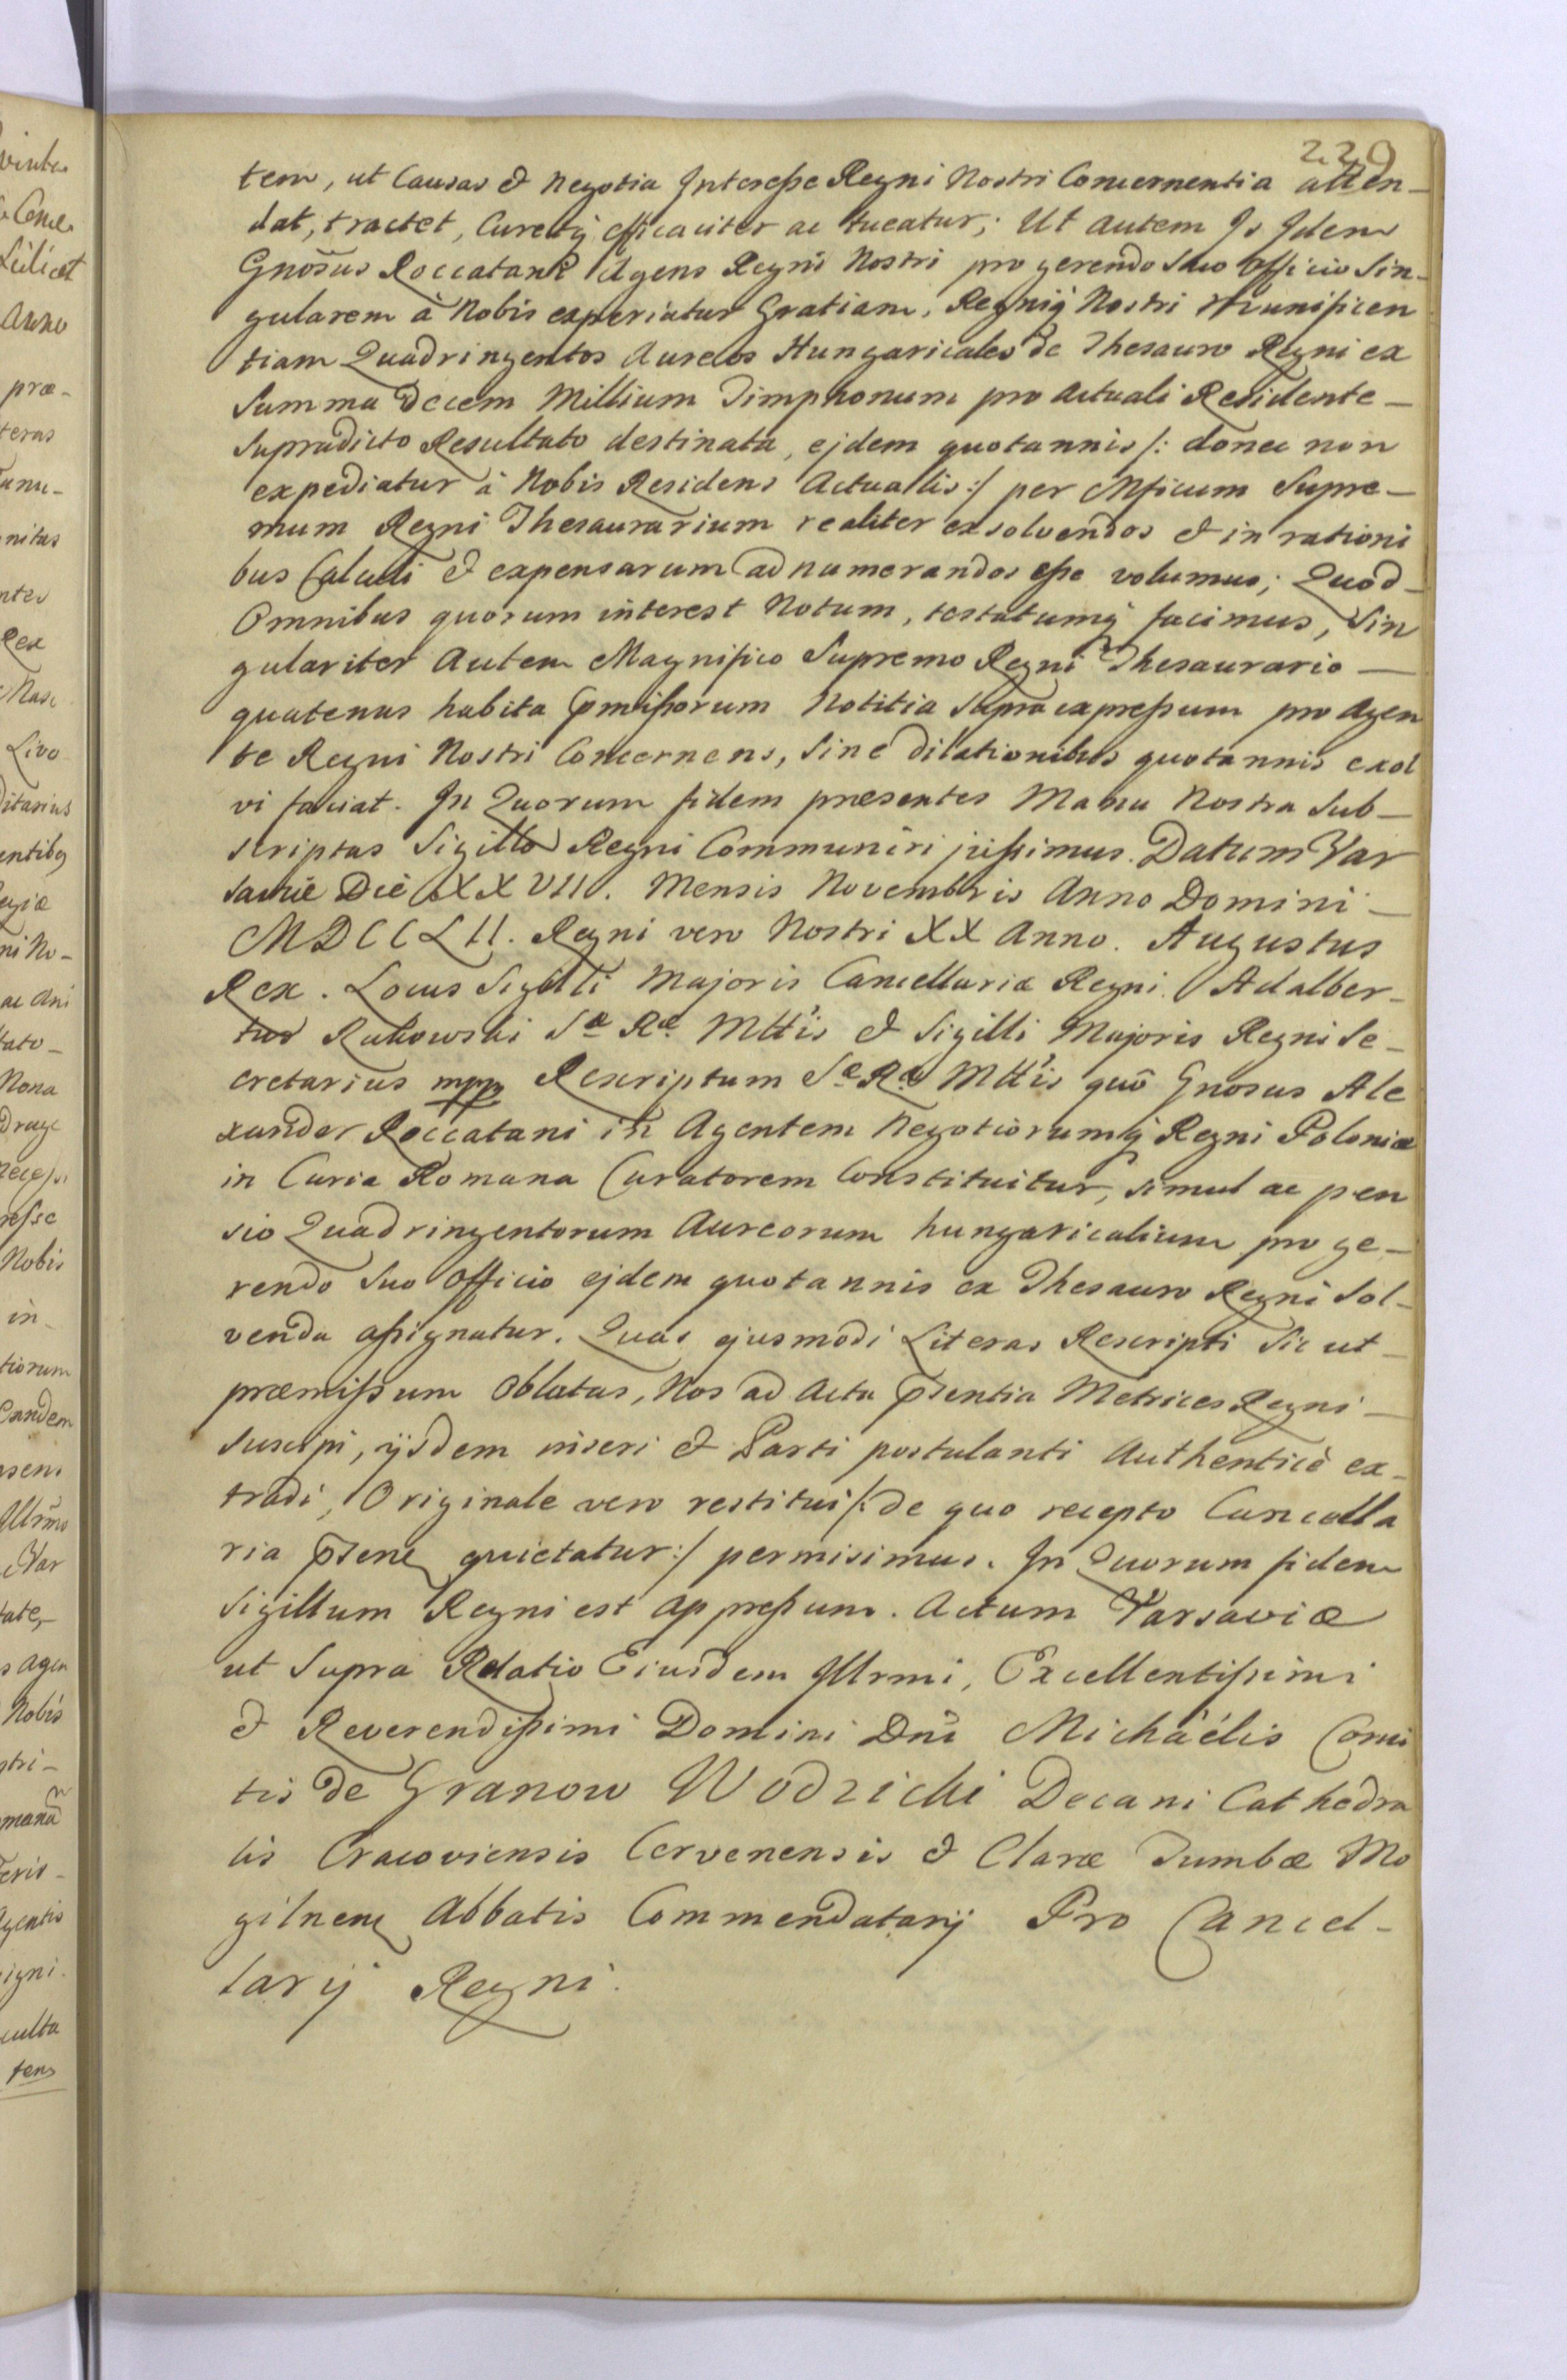 229
tem, ut Causas & negotia Interesse Regni Nostri Concernentia atten-
dat, tractet, Curetq efficaciter ac tueatur; Ut autem Is Idem
Gnosus Roccatani Agens Regni Nostri pro gerendo suo officio Sin-
gularem à Nobis experiatur Gratiam, Regniq Nostri Munificen
tiam Quadringentos Aureos Hungaricales de Thesauro Regni ex
Summa Decem Millium Timphonum pro actuali Residente-
Supradicto Resultato destinata, ejdem quotannis /: donec non
expediatur à Nobis Residens Actuallis :/ per Mficum Supre-
mum Regni Thesaurarium realiter exsolvendos & in rationi
bus Calculi & expensarum adnumerandos esse volumus; Quod-
Omnibus quorum interest Notum, testatumq facimus, Sin
gulariter Autem Magnifico Supremo Regni Thesaurario-
quatenus habita pmissorum Notitia Supra expressum pro Agen
te Regni Nostri Concernens, Sine dilationibus quotannis exol
vi faciat. In Quorum fidem præsentes Manu Nostra Sub-
scriptas Sigillo Regni Communiri jussimus. Datum Var
saviæ Die XXVII. Mensis Novembris Anno Domini-
MDCCLII. Regni vero Nostri XX Anno. Augustus
Rex. Locus Sigilli Majoris Cancellariæ Regni. Adalber-
tus Rakowski Sæ Ræ Mttis & Sigilli Majoris Regni Se-
cretarius mpp Rescriptum Sæ Ræ Mttis quô Gnosus Ale
xander Roccatani in Agentem Negotiorumq Regni Poloniæ
in Curia Romana Curatorem Constituitur, simul ac pen
sio Quadringentorum Aureorum hungaricalium pro ge-
rendo Suo Officio ejdem quotannis ex Thesauro Regni Sol-
venda assignatur. Quas ejusmodi Literas Rescripti Sic ut-
præmissum Oblatas, Nos ad Acta psentia Metrices Regni-
Suscipi, ijsdem inseri & Parti postulanti Authenticè ex-
tradi, Originale vero restitui /: de quo recepto Cancella
ria psens quietatur :/ permisimus. In Quorum fidem
Sigillum Regni est appressum. Actum Varsaviæ
ut Supra Relatio Eiusdem Illrmi, Excellentissimi
& Reverendissimi Domini Dni Michaélis Comi
tis de Granow Wodzicki Decani Cathedra
lis Cracoviensis Cervenensis & Claræ Tumbæ Mo
gilnens Abbatis Commendatarij Pro Cancel-
larij Regni.